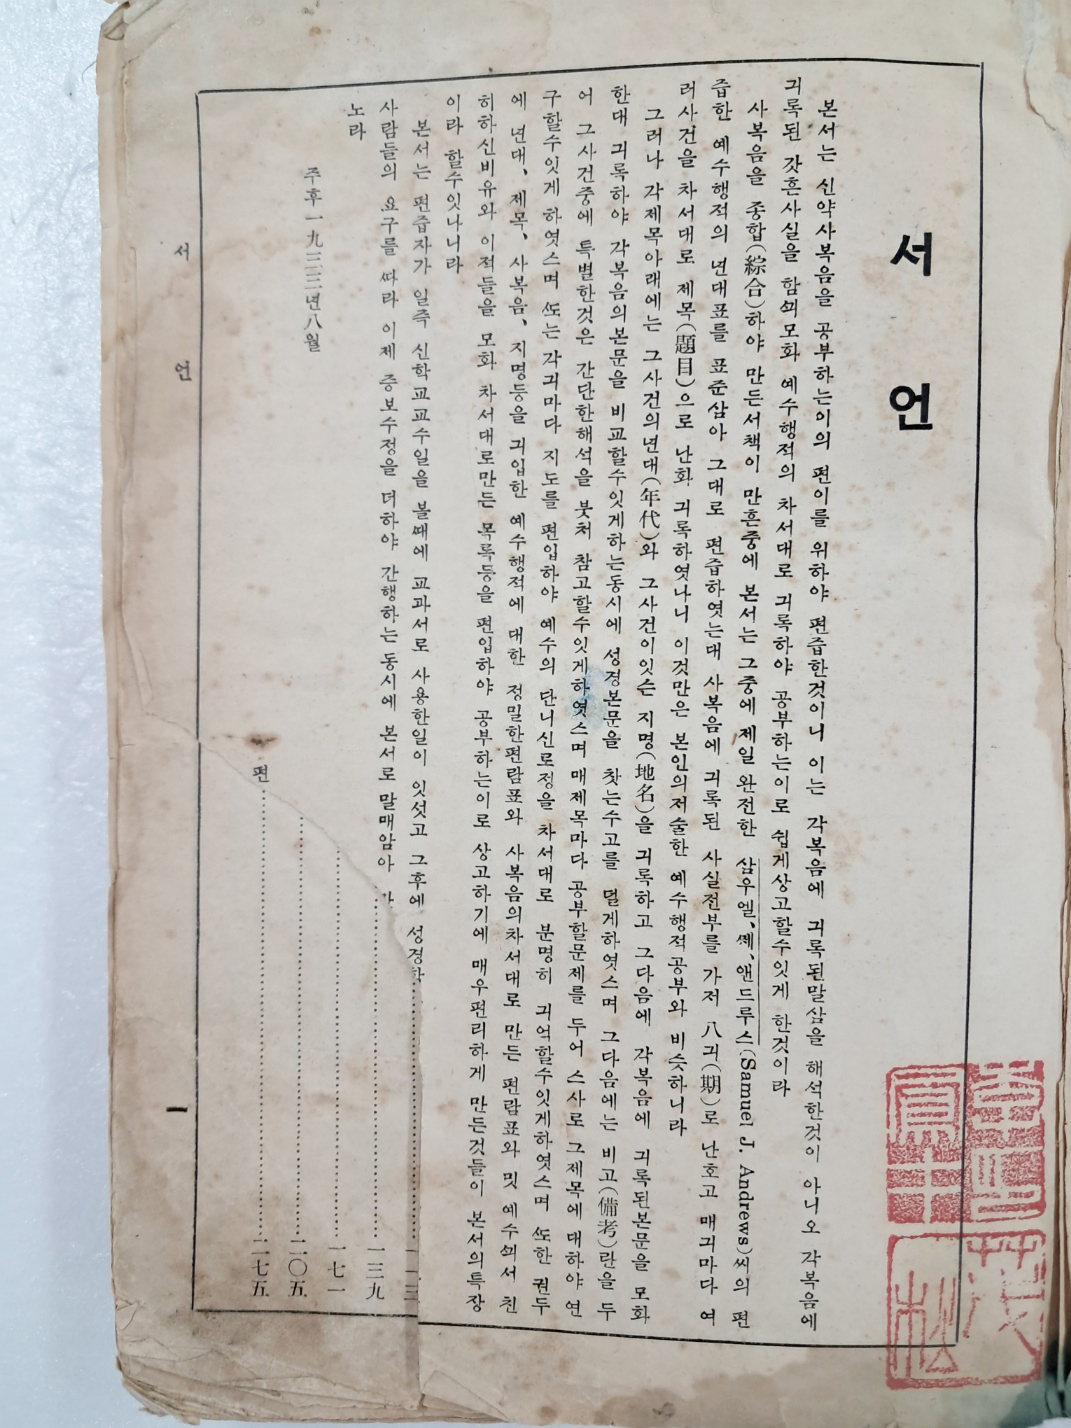 서언
본서는 신약사복음을 공부하는이의 편이를 위하야 편즙한것이니 이는 각복음에 긔록된말삼을 해석한것이 아니오 각복음에
긔록된 갓흔사실을 함ᄭᅴ모화 예수행적의 차서대로 긔록하야 공부하는이로 쉽게상고할수잇게 한것이라
사복음을 종합(綜合)하야 만든서책이 만흔중에 본서는 그중에 제일 완전한 삼우엘、쪠、앤드루스(Samuel J. Andrews)씨의 편
즙한 예수행적의 년대표를 표준삼아 그대로 편즙하엿는대 사복음에 긔록된 사실전부를 가저 八긔(期)로 난호고 매긔마다 여
러사건을 차서대로 제목(題目)으로 난화 긔록하엿나니 이것만은 본인의저술한 예수행적공부와 비슷하니라
그러나 각제목아래에는 그사건의년대(年代)와 그사건이잇슨 지명(地名)을 긔록하고 그다음에 각복음에 긔록된본문을 모화
한대 긔록하야 각복음의본문을 비교할수잇게하는동시에 성경본문을 찻는수고를 덜게하엿스며 그다음에는 비고(備考)란을 두
어 그사건중에 특별한것은 간단한해석을 붓처 참고할수잇게하엿스며 매제목마다 공부할문제를 두어 스사로 그제목에 대하야 연
구할수잇게 하엿스며 ᄯᅩ는 각긔마다 지도를 편입하야 예수의 단니신로정을 차서대로 분명히 긔억할수잇게하엿스며 ᄯᅩ한 권두
에 년대、제목、사복음、지명등을 긔입한 예수행적에 대한 정밀한편람표와 사복음의차서대로 만든 편람표와 밋 예수ᄭᅴ서 친
히하신비유와 이적들을 모화 차서대로만든 목록등을 편입하야 공부하는이로 상고하기에 매우편리하게 만든것들이 본서의특장
이라 할수잇나니라
본서는 편즙자가 일즉 신학교교수일을 볼ᄯᅢ에 교과서로 사용한일이 잇섯고 그후에 성경학
사람들의 요구를 ᄯᅡ라 이제 증보수정을 더하야 간행하는동시에 본서로 말매암아
노라
주후一九三三년八월
一一三
一三九
一七一
二〇五
편 二七五
서언
一